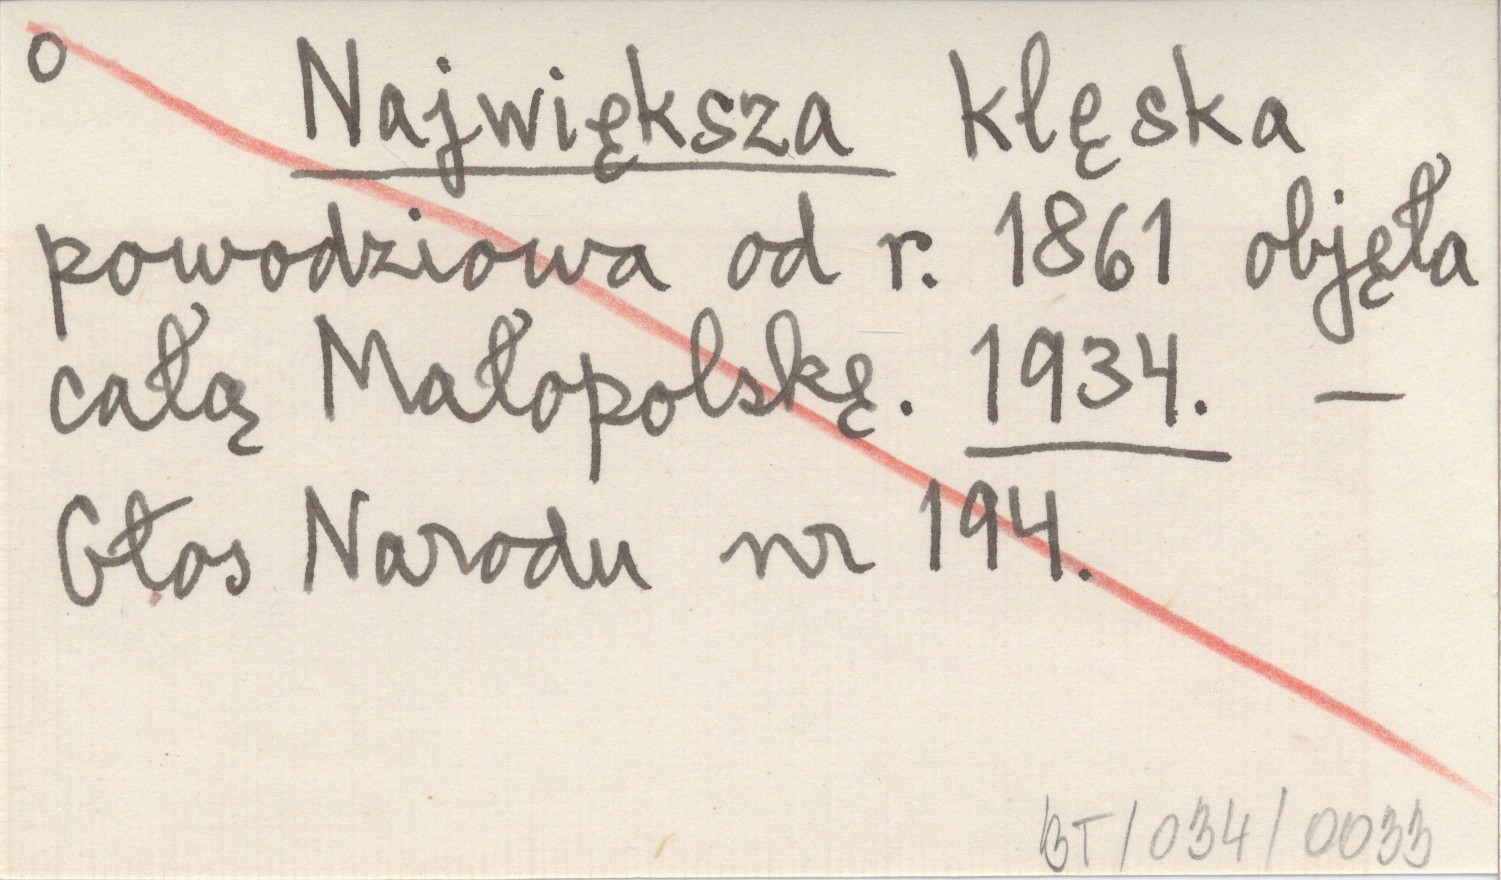 o Największa klęska
powodziowa od r. 1861 objęła
całą Małopolskę. 1934. —
Głos Narodu nr 194.
BT/034/0033